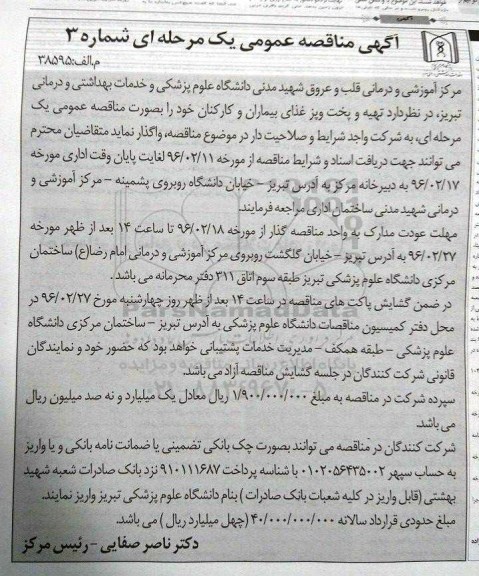 آگهی مناقصه عمومی یک مرحله ای شماره ۳
م.الف:۳۸۵۹۵
مرکز آموزشی و درمانی قلب و عروق شهید مدنی دانشگاه علوم پزشکی و خدمات بهداشتی و درمانی
تبریز، در نظردارد تهیه و پخت وپز غذای بیماران و کارکنان خود را بصورت مناقصه عمومی یک
مرحله ای، به شرکت واجد شرایط و صلاحیت دار در موضوع مناقصه، واگذار نماید متقاضیان محترم
می توانند جهت دریافت اسناد و شرایط مناقصه از مورخه ۹۶/۰۲/۱۱ لغایت پایان وقت اداری مورخه
۹۶/۰۲/۱۷ به دبیرخانه مرکز به آدرس تبریز – خیابان دانشگاه روبروی پشمینه – مرکز آموزشی و
درمانی شهید مدنی ساختمان اداری مراجعه فرمایند.
مهلت عودت مدارک به واحد مناقصه گذار از مورخه ۹۶/۰۲/۱۸ تا ساعت ۱۴ بعد از ظهر مورخه
۹۶/۰۲/۲۷ به آدرس تبریز – خیابان گلگشت روبروی مرکز آموزشی و درمانی امام رضا(ع) ساختمان
مرکزی دانشگاه علوم پزشکی تبریز طبقه سوم اتاق ۳۱۱ دفتر محرمانه می باشد.
در ضمن گشایش پاکت های مناقصه در ساعت ۱۴ بعد از ظهر روز چهارشنبه مورخ ۹۶/۰۲/۲۷ در
محل دفتر کمیسیون مناقصات دانشگاه علوم پزشکی به آدرس تبریز – ساختمان مرکزی دانشگاه
علوم پزشکی – طبقه همکف – مدیریت خدمات پشتیبانی خواهد بود که حضور خود و نمایندگان
قانونی شرکت کنندگان در جلسه گشایش مناقصه آزاد می باشد.
سپرده شرکت در مناقصه به مبلغ ۱/۹۰۰/۰۰۰/۰۰۰ ریال معادل یک میلیارد و نه صد میلیون ریال
می باشد.
شرکت کنندگان در مناقصه می توانند بصورت چک بانکی تضمینی یا ضمانت نامه بانکی و یا واریز
به حساب سپهر ۰۱۰۲۰۵۶۴۳۵۰۰۲ با شناسه پرداخت ۹۱۰۱۱۱۶۸۷ نزد بانک صادرات شعبه شهید
بهشتی (قابل واریز در کلیه شعبات بانک صادرات) بنام دانشگاه علوم پزشکی تبریز واریز نمایند.
مبلغ حدودی قرارداد سالانه ۴۰/۰۰۰/۰۰۰/۰۰۰ (چهل میلیارد ریال) می باشد.
دکتر ناصر صفایی – رئیس مرکز
ParsNamadData